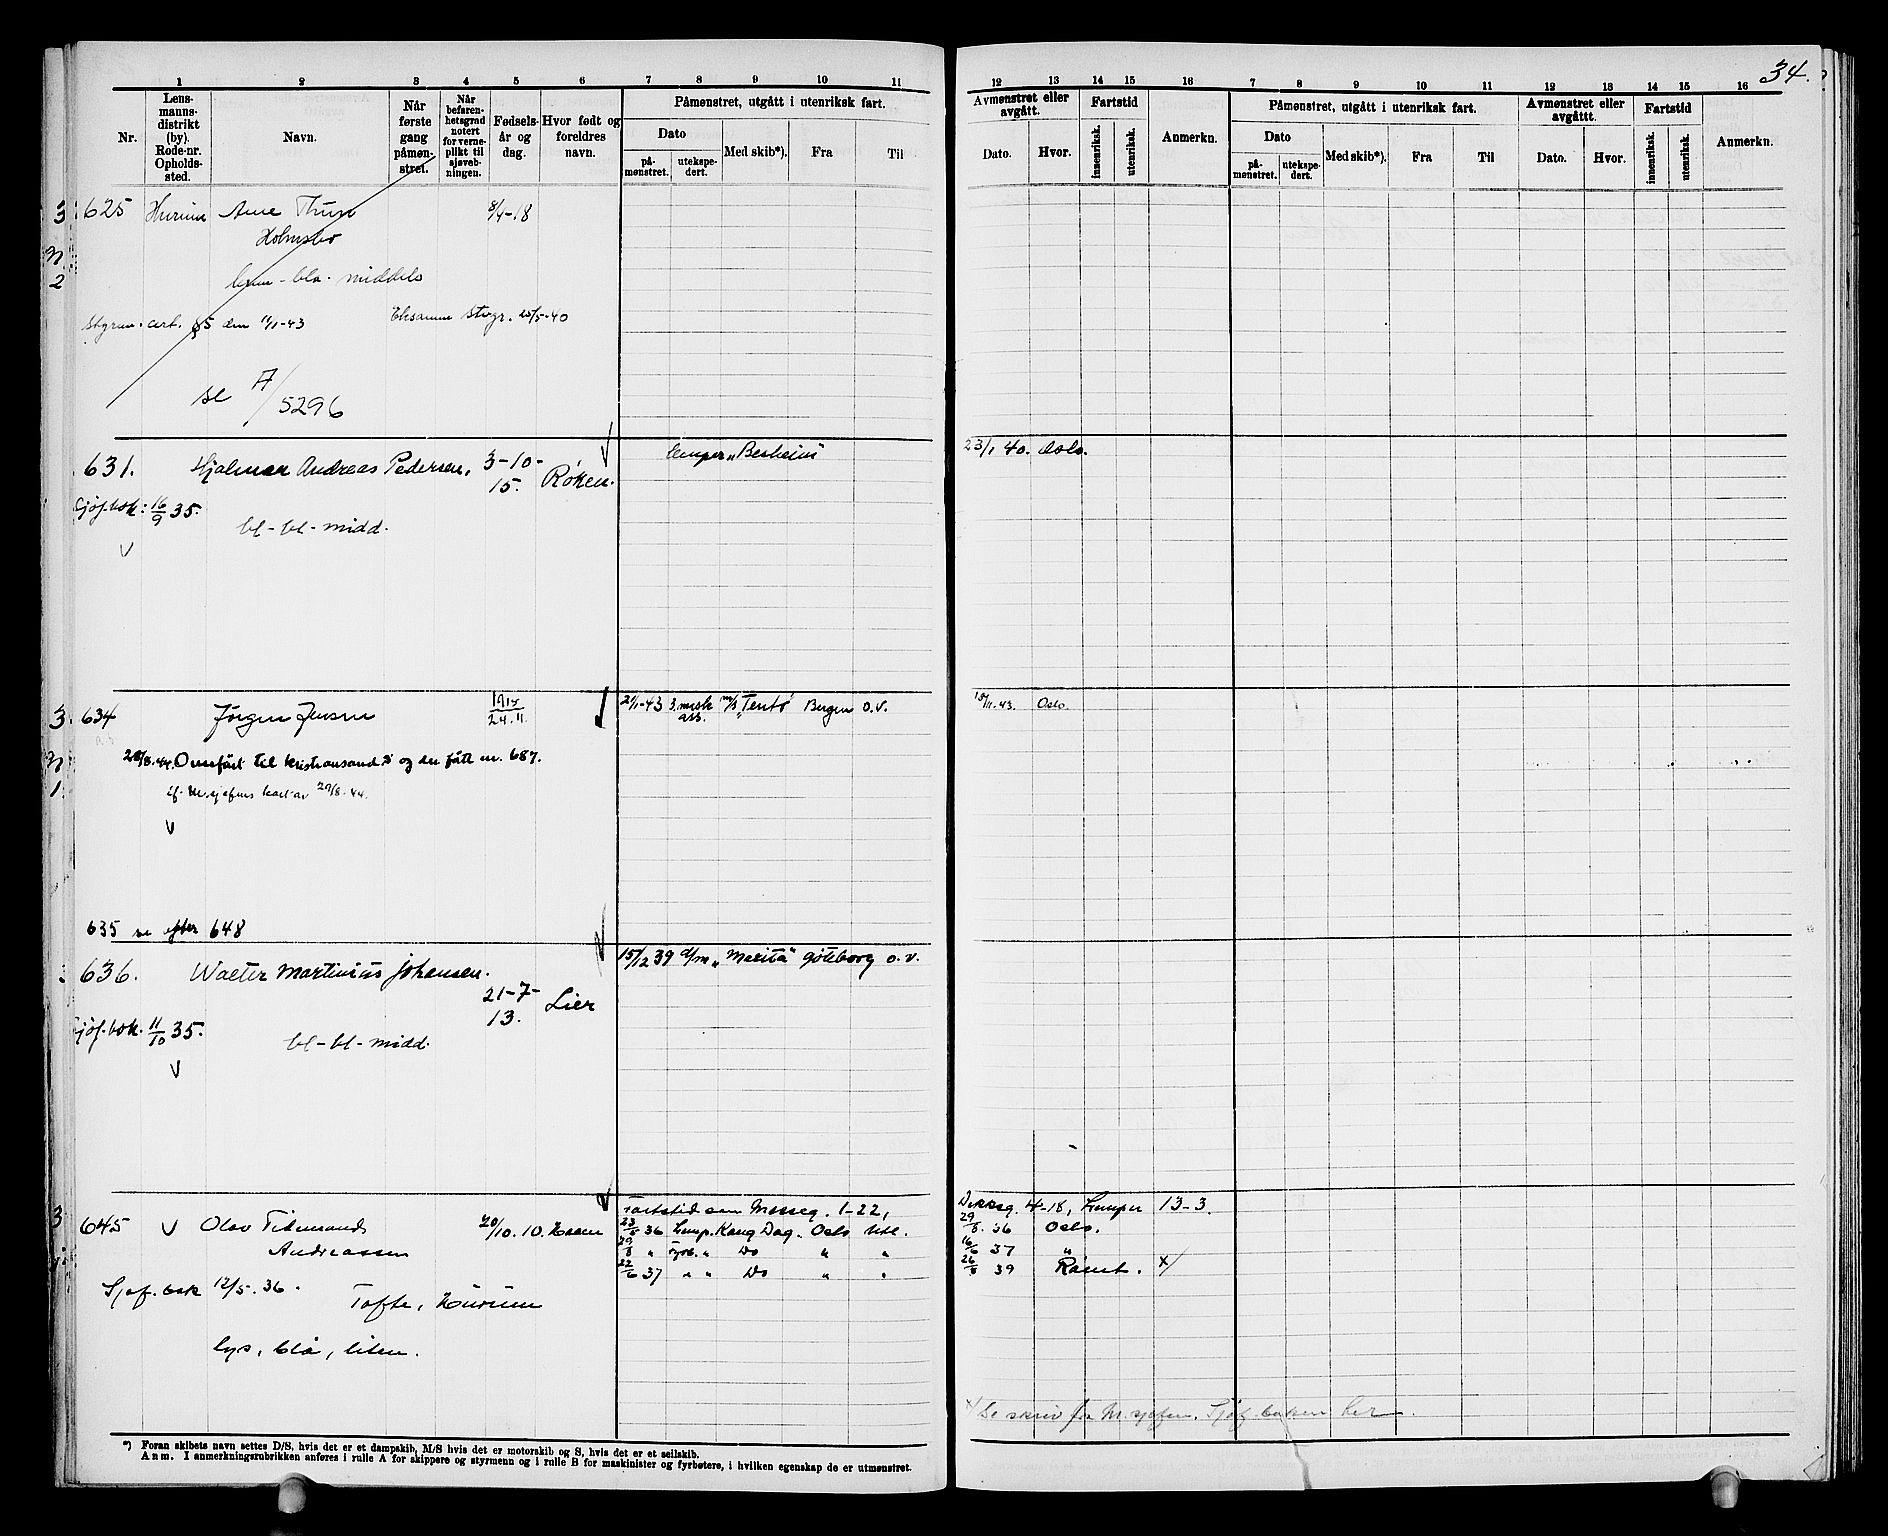 34.
1 2 3 4 5 6 7 8 9 10 11
Nr.
Lens-
manns-
distrikt
(by).
Rode-nr.
Opholds-
sted.
Navn.
Når
første
gang
påmøn-
stret.
Når
befaren-
hetsgrad
notert
for verne-
plikt til
sjøveb-
ningen.
Fødsels-
år og
dag.
Hvor født og
foreldres
navn.
Påmønstret, utgått i utenriksk fart.
Dato
på-
mønstret.
utekspe-
dert.
Med skib*).
Fra
Til
12 13 14 15 16 7 8 9 10 11 12 13 14 15 16
Avmønstret eller
avgått.
Dato.
Hvor.
Fartstid
innenriksk.
utenriksk.
Anmerkn.
Påmønstret, utgått i utenriksk fart.
Dato
på-
mønstret.
utekspe-
dert.
Med skib*).
Fra
Til
Avmønstret eller
avgåttt.
Dato.
Hvor.
Fartstid
innenriksk.
utenriksk.
Anmerkn.
625 Hurum Arne Thure 8/4-18
Holmsbo
brun - blå - middels
Styrm. cert. §5 den 11/1-43 Eksamen 25/5-40
se A/5296
631. Hjalmar Andreas Pedersen, 3-10-15. Røken. lemper "Besheim" 23/1 40. Oslo.
Sjøf.bok: 16/9 35.
bl - bl - midd.
634 Jørgen Jensen 1915 24.11 2/1-43 3. mask ass. M/S "Tento" Bergen o.v. 43. Oslo
28/8.44. Overført til Kristiansand S og der fått nr. 687.
44.
635 se efter 648
636. Walter Martinius Johansen. 15/12 39 d/m "Marita" Göteborg o.v.
21-7-13. Lier
Sjøf.bok. 11/10 35.
bl - bl - midd.
645 Olav Tidemand 20/10.10. Fartstid som Messeg. 1-22, Dekksg. 4-18, Lemper 13-3.
Andreassen
23/5 36 Lemp. Kong Dag. Oslo Utl. 29/8. 36 Oslo.
29/8 " Fyrb. " Do " " 16/6 37 "
22/6 37 " " Do " " 26/8 39 x/
Sjøf. bok 12/5. 36.
Tofte, Hurum
lys, blå, liten.
x/ Se skriv fra M.sjefen. Sjøf. boken her.
*) Foran skibets navn settes D/S, hvis det er et dampskib, M/S hvis det er motorskib og S, hvis det er et seilskib.
Anm. I anmerkningsrubrikken anføres i rulle A for skippere og styrmenn og i rulle B for maskinister og fyrbøtere, i hvilken egenskap de er utmønstret.